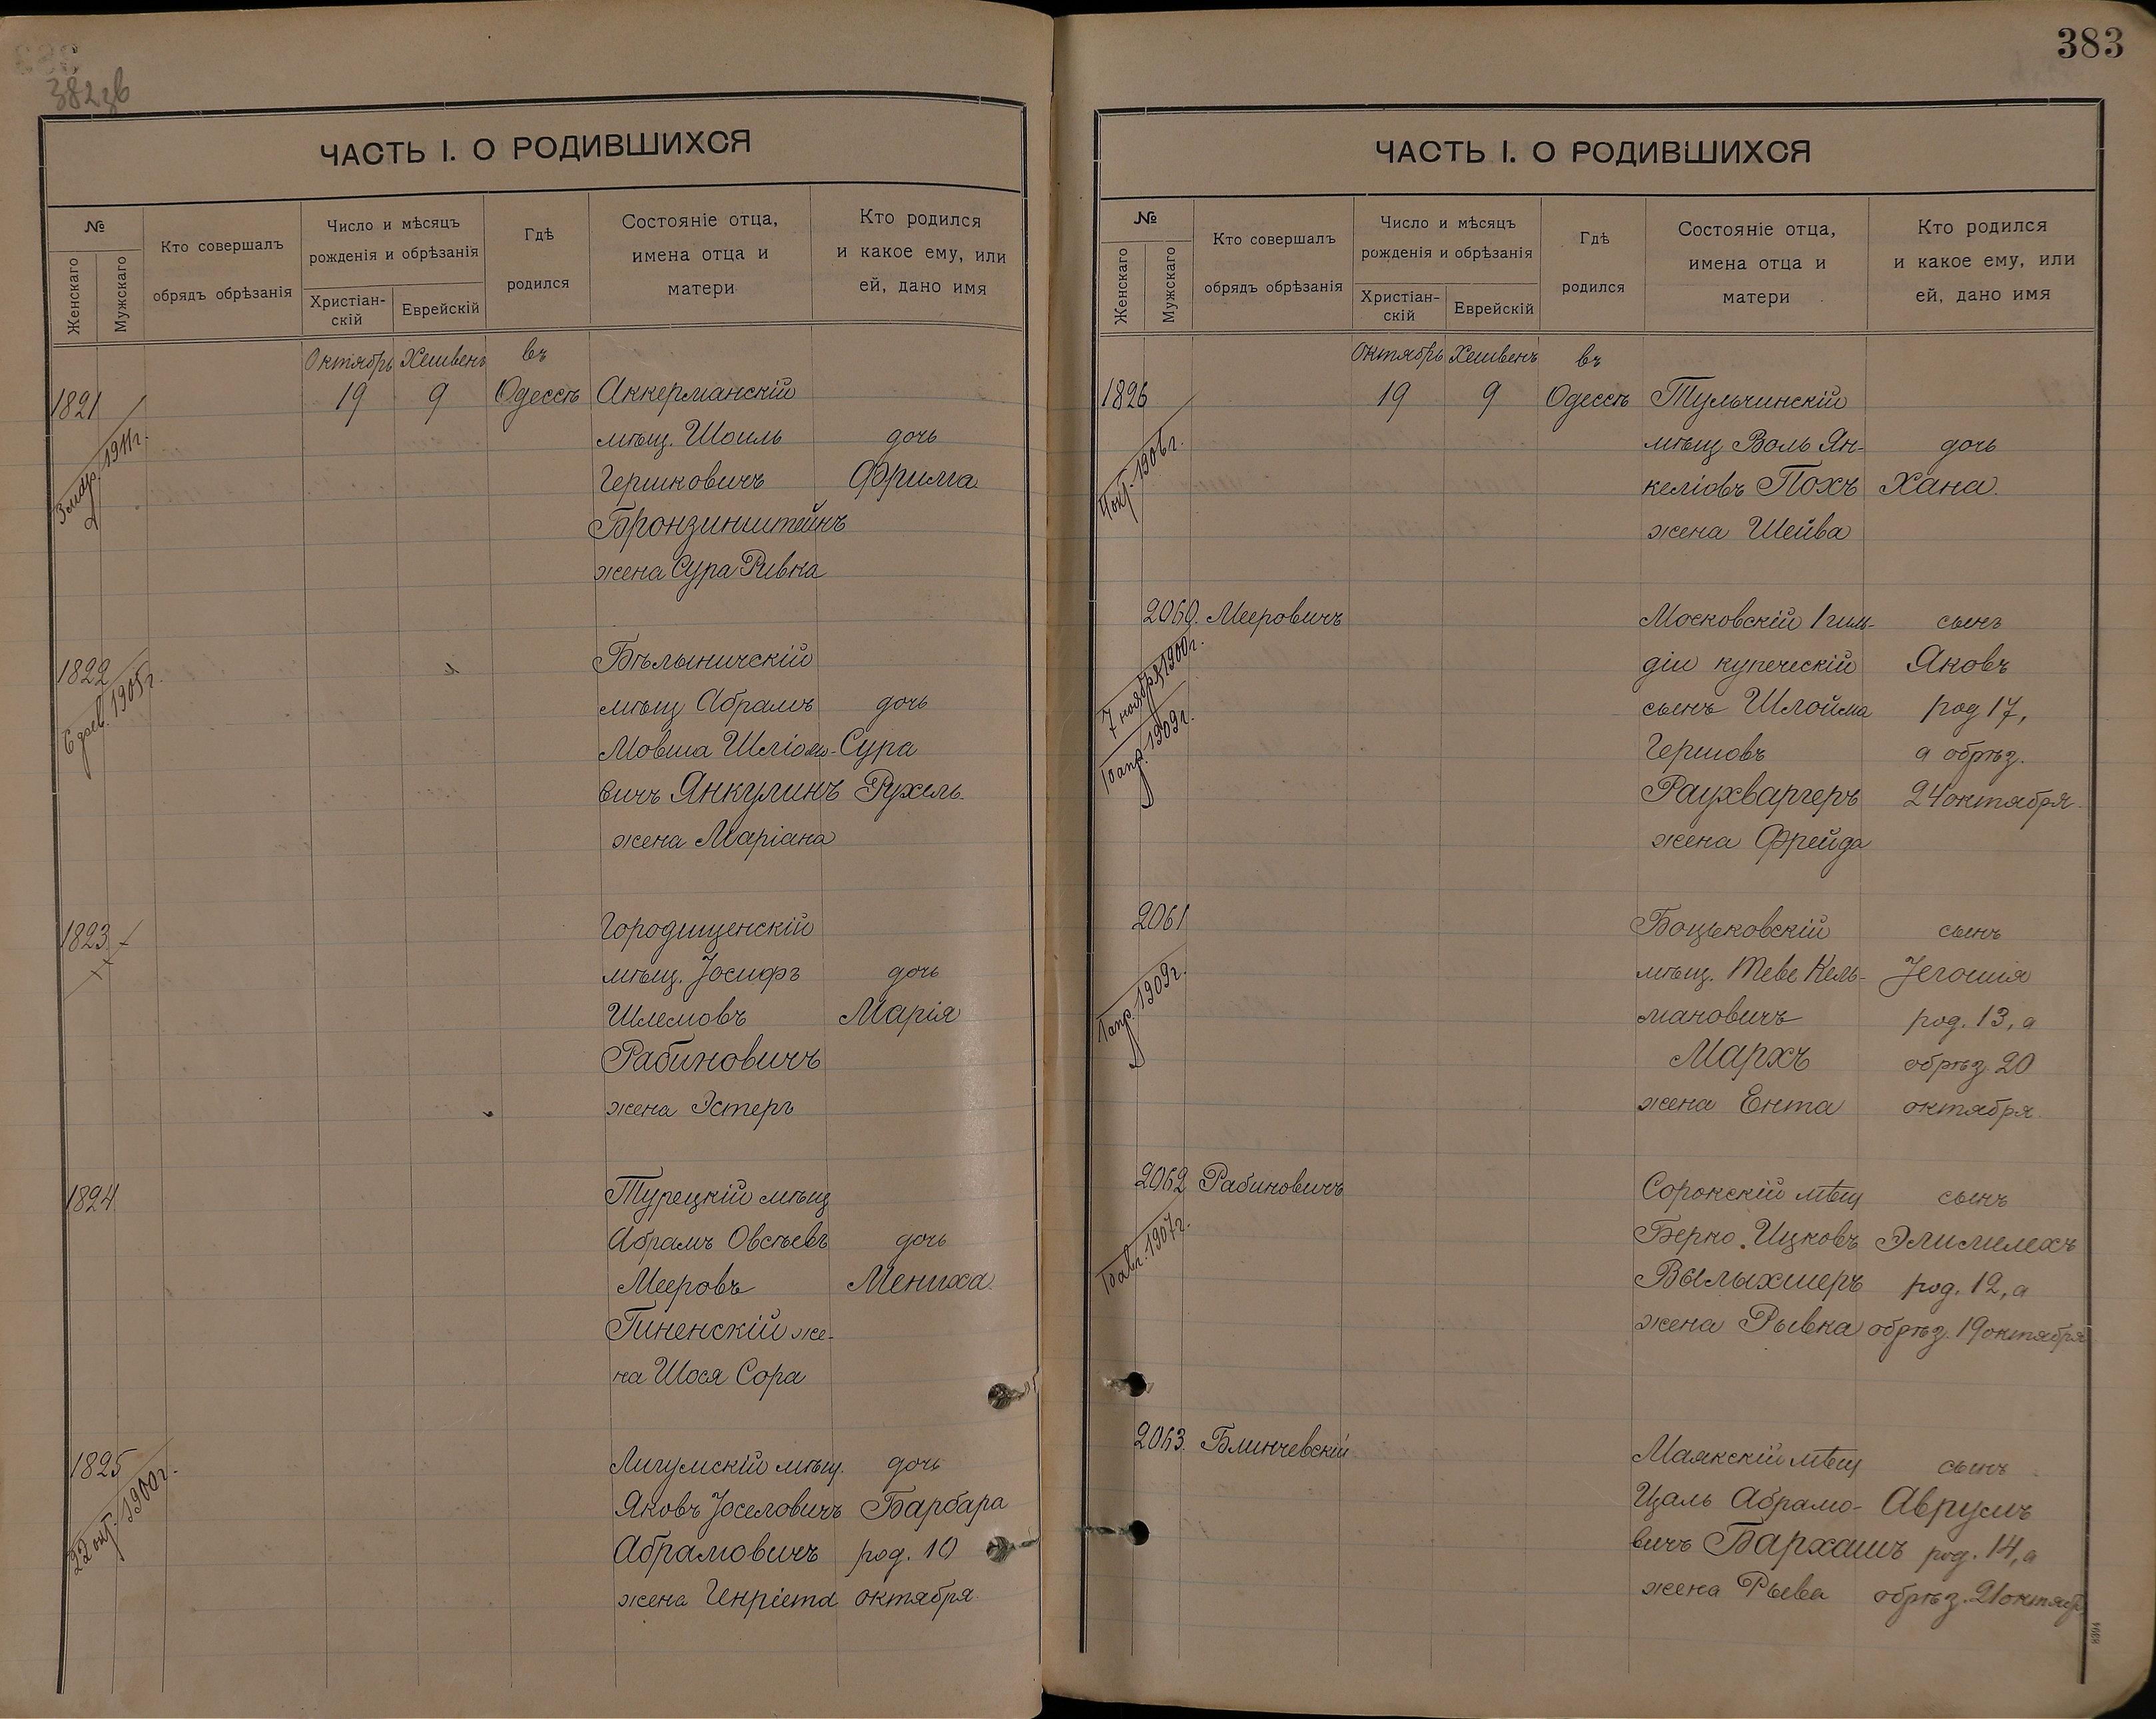 382 зв
ЧАСТЬ I. О РОДИВШИХСЯ
№
Женскаго
Мужскаго
Кто совершалъ
обрядъ обрѣзанія
Число и мѣсяцъ
рожденія и обрѣзанія
Христіан-
скій
Еврейскій
Гдѣ
родился
Состояніе отца,
имена отца и
матери
Кто родился
и какое ему, или
ей, дано имя
Октябрь Хешвень въ
1821 19 9 Одессѣ Аккерманскій
мѣщ. Шоиль дочь
Гершковичъ Фрима
Бронзинштейнъ
жена Сура Ривка
1911г.
1822 Бѣлыничскій
мѣщ Абрамъ дочь
Мовша Шліомо- Сура
вичъ Янкулинъ Рухель
жена Маріана
6 фев. 1905г.
1823 Городищенскій
мѣщ. Іосифъ дочь
Шлемовъ Марія
Рабиновичъ
жена Эстеръ
1824 Турецкій мѣщ
Абрамъ Овсѣевъ дочь
Мееровъ Мениха
Гиненскій же-
на Шося Сора
1825 Лигумскій мѣщ. дочь
Яковъ Іоселовичъ Барбара
Абрамовичъ род. 10
жена Генріета октября
22 окт. 1900г.
383
ЧАСТЬ I. О РОДИВШИХСЯ
№
Женскаго
Мужскаго
Кто совершалъ
обрядъ обрѣзанія
Число и мѣсяцъ
рожденія и обрѣзанія
Христіан-
скій
Еврейскій
Гдѣ
родился
Состояніе отца,
имена отца и
матери
Кто родился
и какое ему, или
ей, дано имя
Октябрь Хешвень въ
1826 19 9 Одессѣ Тульчинскій
мѣщ Воль Ян- дочь
келіовъ Похъ Хана.
жена Шейва
окт. 1906г.
2060. Мееровичъ Московскій 1 гиль- сынъ
діи купеческій Яковъ
сынъ Шлойма род 17,
Гершовъ а обрѣз.
Раухваргеръ 24 октября
жена Фрейда
7 ноября 1900г.
10 апр. 1909г.
2061 Боцьковскій сынъ
мѣщ. Теве Кель- Іегошія
мановичъ род. 13, а
Мархъ обрѣз 20
жена Ента октября
1 апр. 1909г.
2062 Рабиновичъ Сорокскій мѣщ сынъ
Берко Ицковъ Элимелехъ
Вылыхмеръ род. 12, а
жена Рывка обрѣз. 19 октября
10 авг. 1907г.
2063 Блинчевскій Маякскій мѣщ сынъ
Цаль Абрамо- Аврумъ
вичъ Бархашъ род. 14, а
жена Рыва обрѣз. 21 октяб
8394